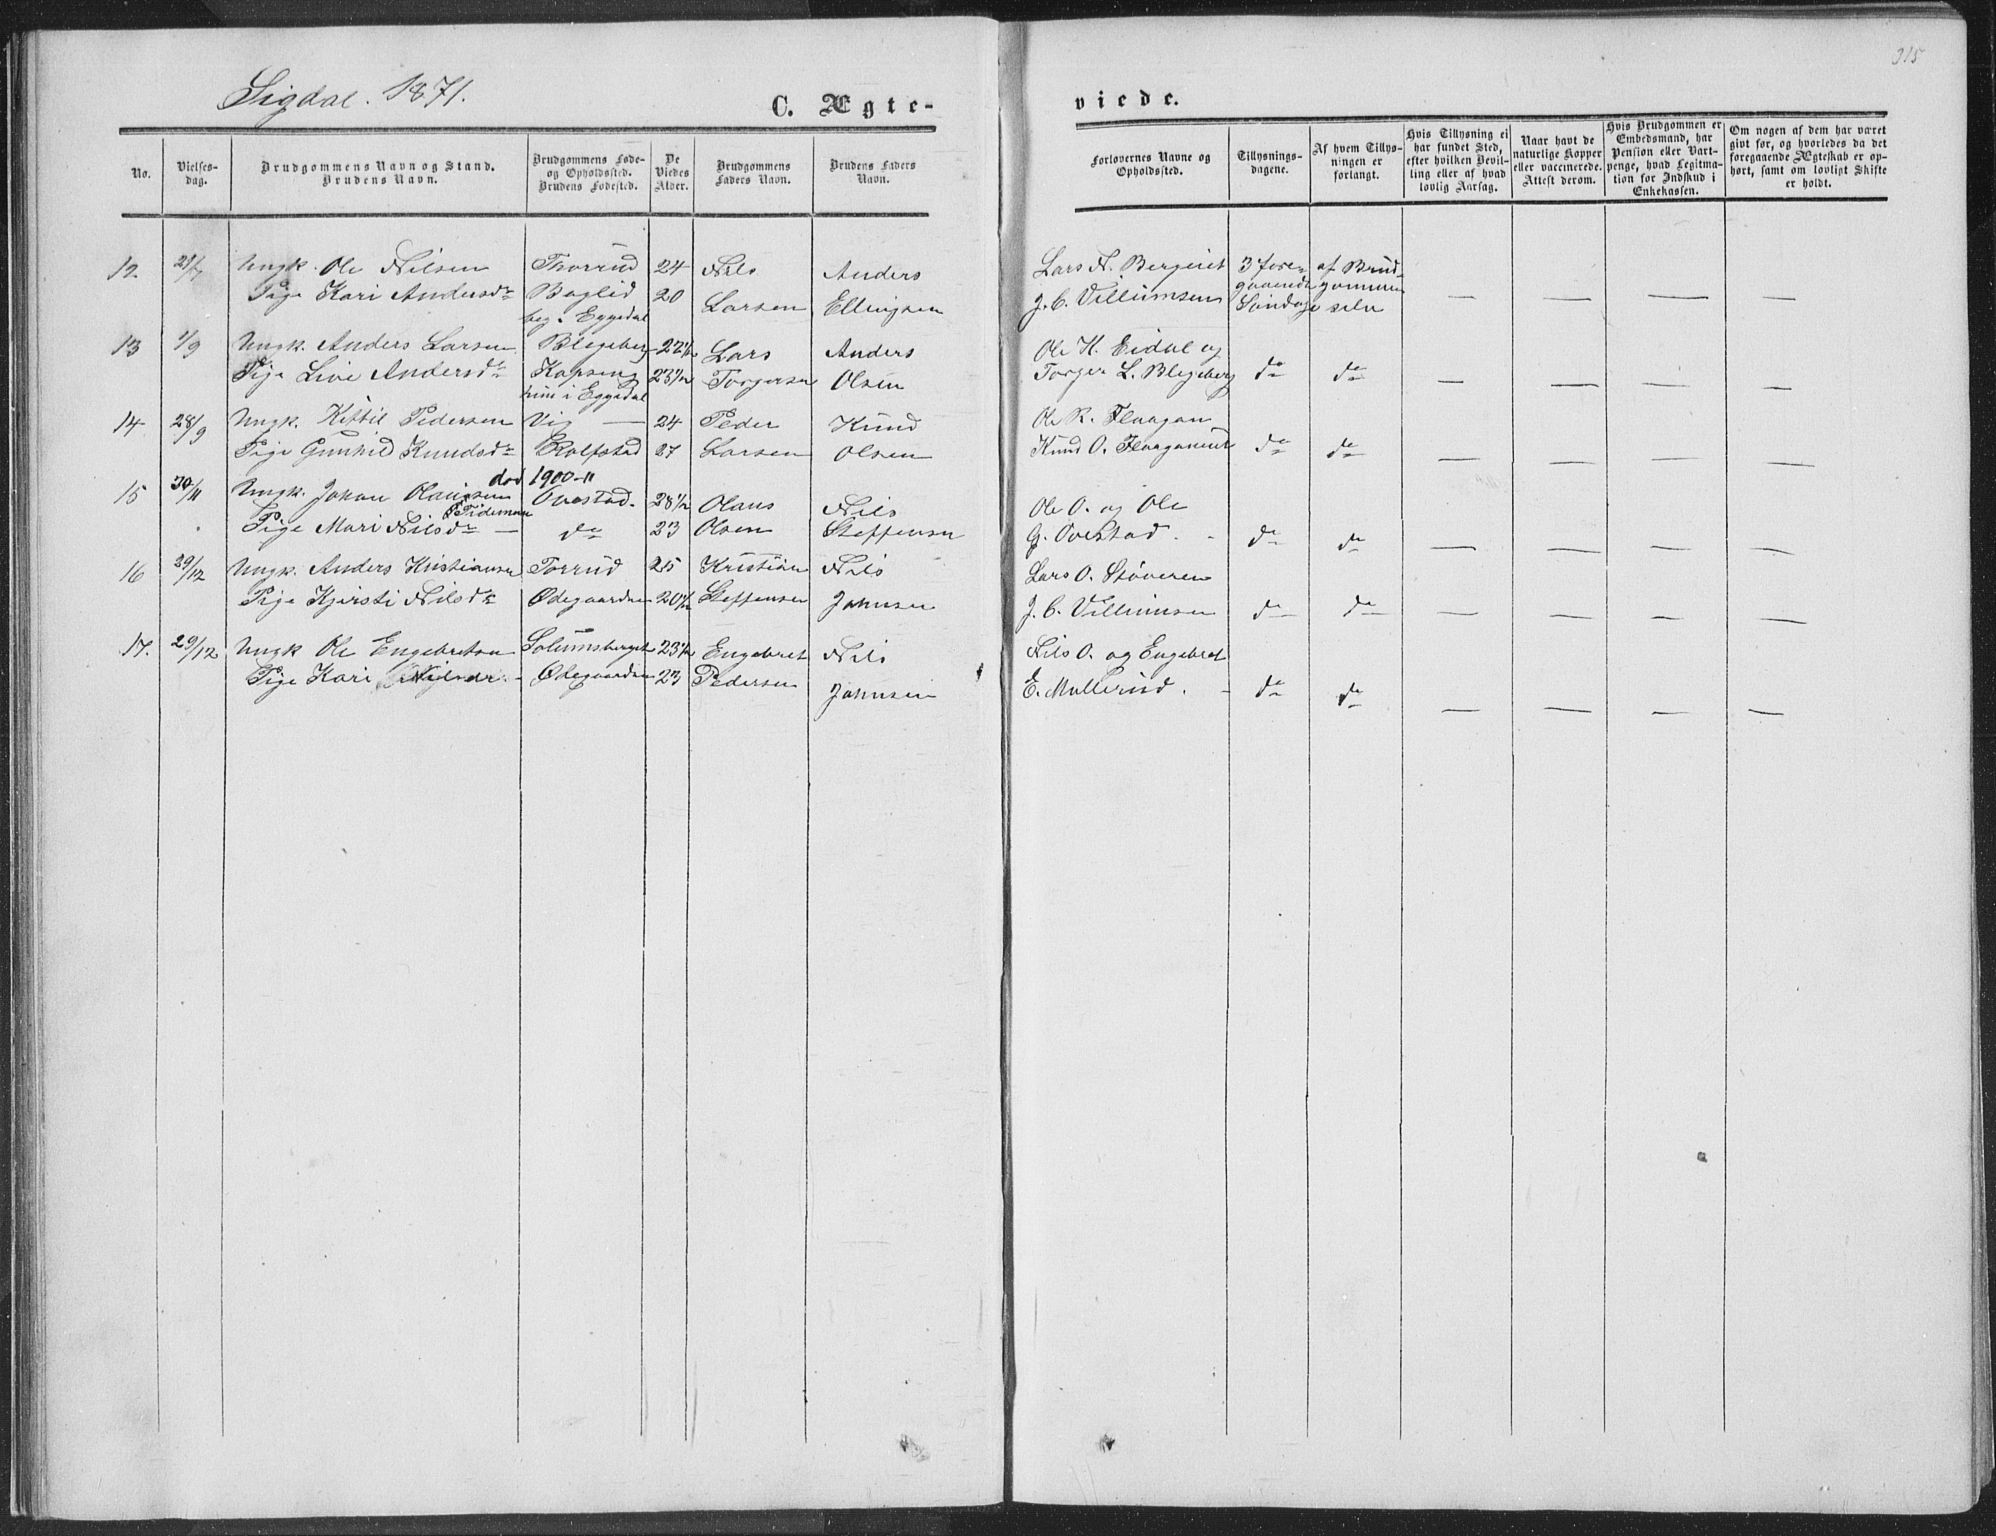 315
Sigdal. 1871.
C. Ægte-
viede.
No.
Vielses-
dag.
Brudgommens Navn og Stand.
Brudens Navn.
Brudgommens Føde-
og Opholdssted.
Brudens Fødested.
De
Viedes
Alder.
Brudgommens
Faders Navn.
Brudens Faders
Navn.
Forlovernes Navne og
Opholdssted.
Tillysnings-
dagene.
Af hvem Tillys-
ningen er
forlangt.
Hvis Tillysning ei
har fundet Sted,
efter hvilken Bevil-
ling eller af hvad
lovlig Aarsag.
Naar havt de
naturlige Kopper
eller vaccinerede.
Attest derom.
Hvis Brudgommen er
Embedsmand, har
Pension eller Vart-
penge, hvad Legitima-
tion for Indskud i
Enkekassen.
Om nogen af dem har været
givt før, og hvorledes da det
foregaaende Ægteskab er op-
hørt, samt om lovligt Skifte
er holdt.
12. 21/7 Ungk. Ole Nilsen Thorrud 24 Nils Anders Lars N. Berget 3 fore- af Brud-
Pige Kari Andersdr Baglid 20 Larsen Ellingsen J. C. Villumsen gaaende gommen
i Eggedal Søndage selv
13 1/9 Ungk. Anders Larsen Blegeberg 22½ Lars Anders Ole H. Eidal og
Pige Live Andersdr 23½ Torgersen Olsen Torger L. Blegeberg do do
i Eggedal
14. 28/9 Ungk. Kittil Pedersen Vig 24 Peder Knud Ole K. Flaagan
Pige Gunhild Knudsdr Rolfstad 27 Larsen Olsen Knud O. do do
død 1900-11
15 30/11 Ungk. Johan Olaussen Ovestad. 28½ Olaus Nils Ole O. og Ole
Tideman
Pige Mari Nilsdr do 23 Olsen Steffensen G. Ovestad. do do
16 29/12 Ungk. Anders Kristiansen Torrud 25 Kristian Nils Lars O. Støveren
Pige Kjersti Nilsdr Ødegaarden 20½ Steffensen Johnsen J. C. Villumsen do do
17. 29/12 Ungk Ole Engebretsen Solumsberget 23½ Engebret Nils Nils O. og Engebret
Pige Kari Nilsdr. Ødegaarden 23 Pedersen Johnsen E. Mollerud. do do